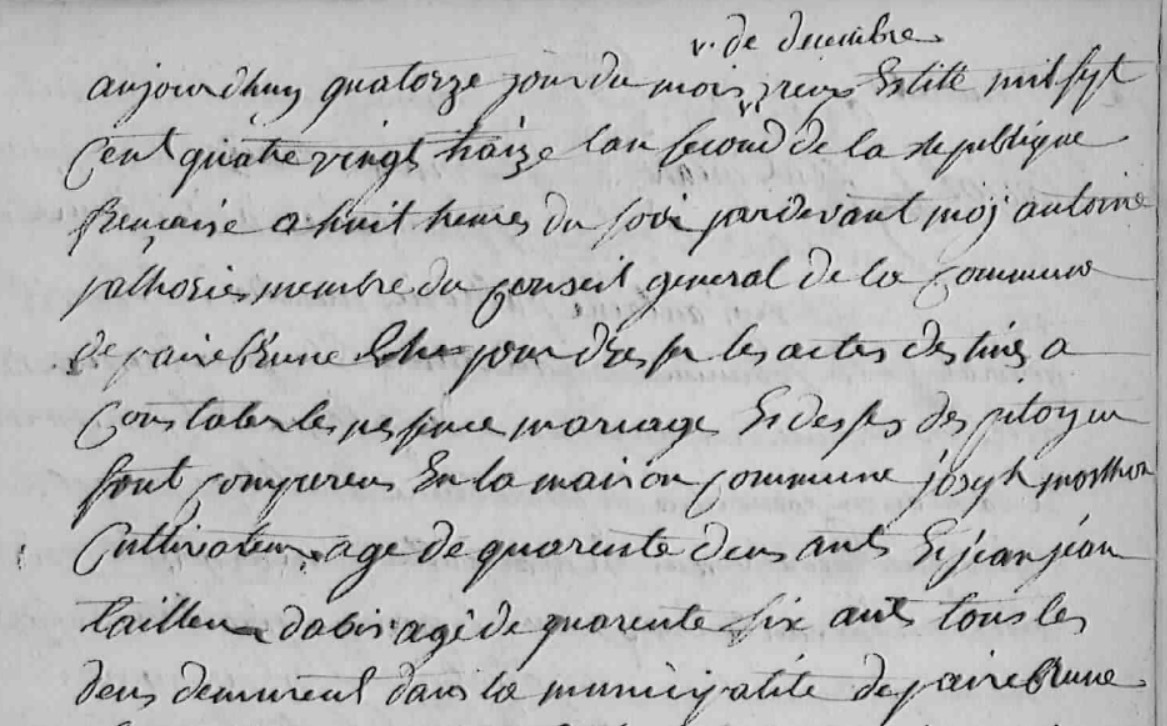 v. de decembre
aujourdhuy quatorze jour du mois vieux Estile mil sept
Cent quatre vingt traize lan second de la republique
francaise a huit heures du soir pardevant moj antoine
palhories membre du conseil general de la commune
de peirebrune Elu pour dresser les actes destinés a
Constater les nessence mariage Et desses des citoyen
sont compareus En la maison commune joseph
Cultivateur age de quarente deus ants Et jean jean
tailleur dabis agé de quarente six ants tous les
deus demurent dans la municipalité de peirebrune